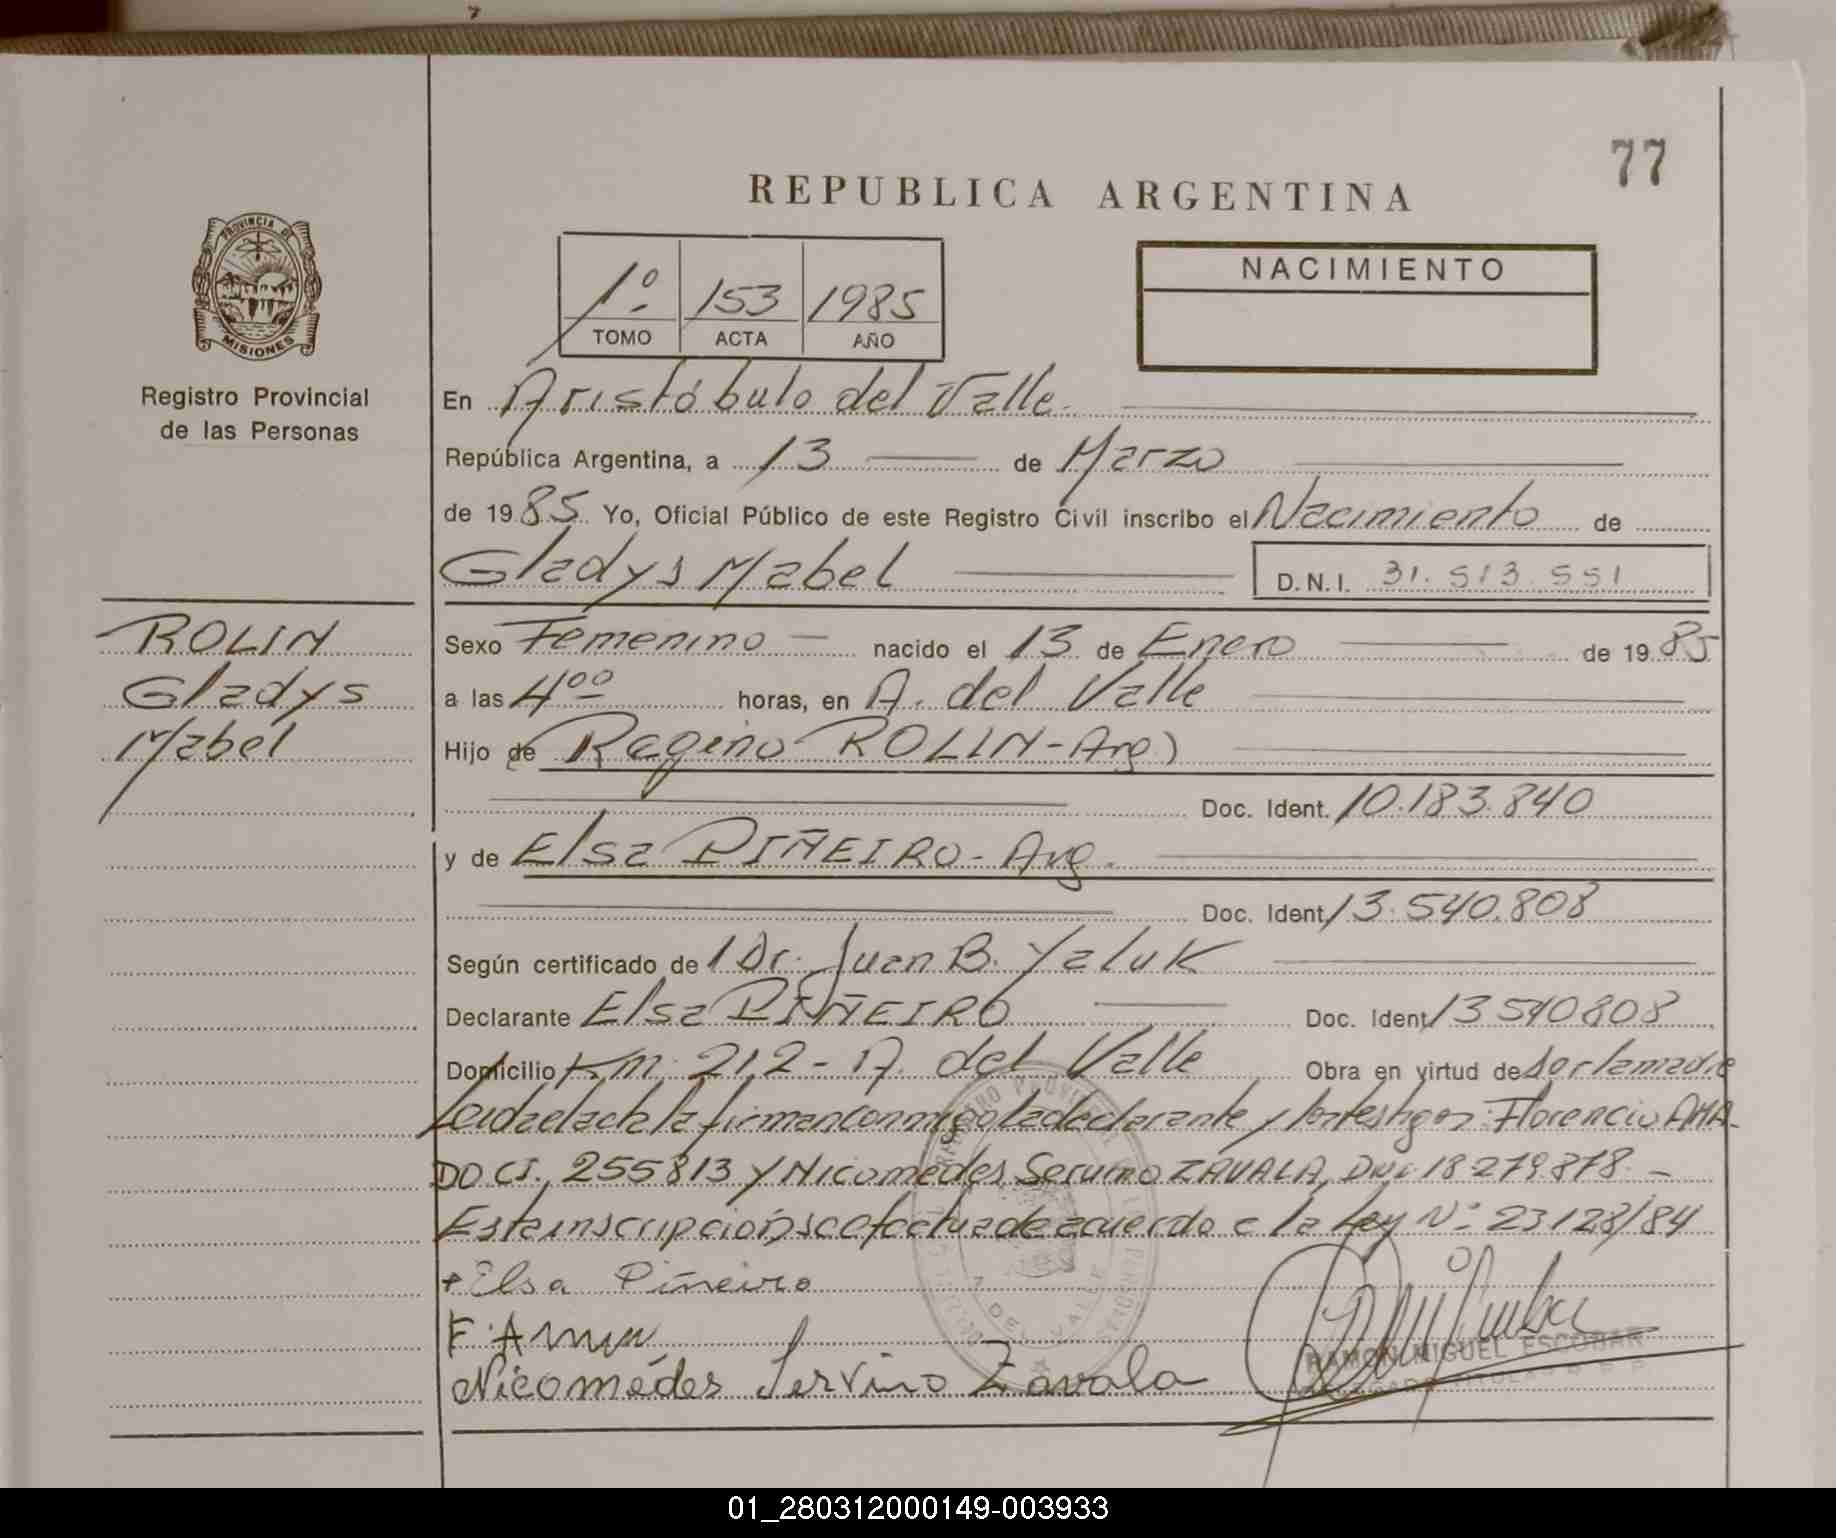 77
REPUBLICA ARGENTINA
PROVINCIA DE
MISIONES
Registro Provincial
de las Personas
1º 153 1985
TOMO ACTA AÑO
NACIMIENTO
En Aristóbulo del Valle
República Argentina, a 13 de Marzo
de 1985 Yo, Oficial Público de este Registro Civil inscribo el Nacimiento de
Gladys Mabel D.N.I. 31.513.551
ROLIN
Gladys
Mabel
Sexo Femenino nacido el 13 de Enero de 1985
a las 4ºº horas, en A. del Valle
Hijo de Regino ROLIN-Arg)
Doc. Ident. 10.183.840
y de Elsa PIÑEIRO-Arg.
Doc. Ident. 13.540.808
Según certificado de l Dr. Juan B. Yaluk
Declarante Elsa PIÑEIRO Doc. Ident. 13540808
Domicilio Km 212- A. del Valle Obra en virtud de ser la madre
Leida el acta la firman conmigo la declarante y los testigos: Florencio AMA-
DO CI. 255813 y Nicomedes Servino ZAVALA, DNI 18279878-
Esta inscripción se efectua de acuerdo a la Ley Nº 23128/84
Elsa Piñeiro
Nicomédes Servino Zavala
RAMON MIGUEL ESCOBAR
01_280312000149-003933